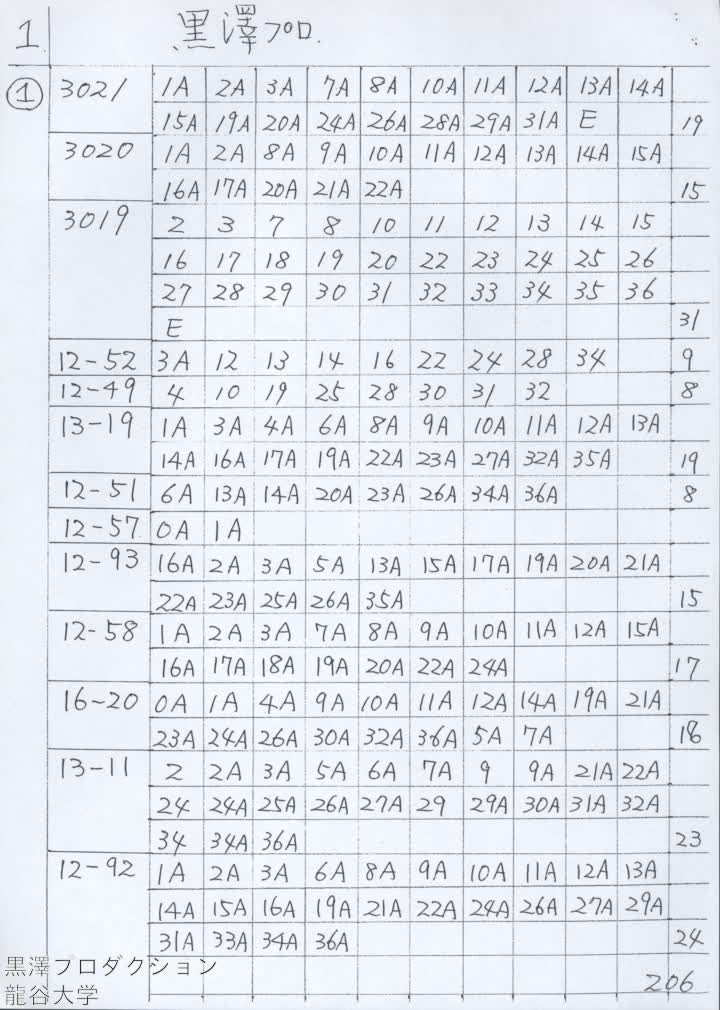 1 黒澤プロ.
① 3021 1A 2A 3A 7A 8A 10A 11A 12A 13A 14A
15A 19A 20A 24A 26A 28A 29A 31A E 19
3020 1A 2A 8A 9A 10A 11A 12A 13A 14A 15A
16A 17A 20A 21A 22A 15
3019 2 3 7 8 10 11 12 13 14 15
16 17 18 19 20 22 23 24 25 26
27 28 29 30 31 32 33 34 35 36
E 31
12-52 3A 12 13 14 16 22 24 28 34 9
12-49 4 10 19 25 28 30 31 32 8
13-19 1A 3A 4A 6A 8A 9A 10A 11A 12A 13A
14A 16A 17A 19A 22A 23A 27A 32A 35A 19
12-51 6A 13A 14A 20A 23A 26A 34A 36A 8
12-57 0A 1A
12-93 16A 2A 3A 5A 13A 15A 17A 19A 20A 21A
22A 23A 25A 26A 35A 15
12-58 1A 2A 3A 7A 8A 9A 10A 11A 12A 15A
16A 17A 18A 19A 20A 22A 24A 17
16~20 0A 1A 4A 9A 10A 11A 12A 14A 19A 21A
23A 24A 26A 30A 32A 36A 5A 7A 18
13-11 2 2A 3A 5A 6A 7A 9 9A 21A 22A
24 24A 25A 26A 27A 29 29A 30A 31A 32A
34 34A 36A 23
12-92 1A 2A 3A 6A 8A 9A 10A 11A 12A 13A
14A 15A 16A 19A 21A 22A 24A 26A 27A 29A
31A 33A 34A 36A 24
206
黒澤プロダクション
龍谷大学